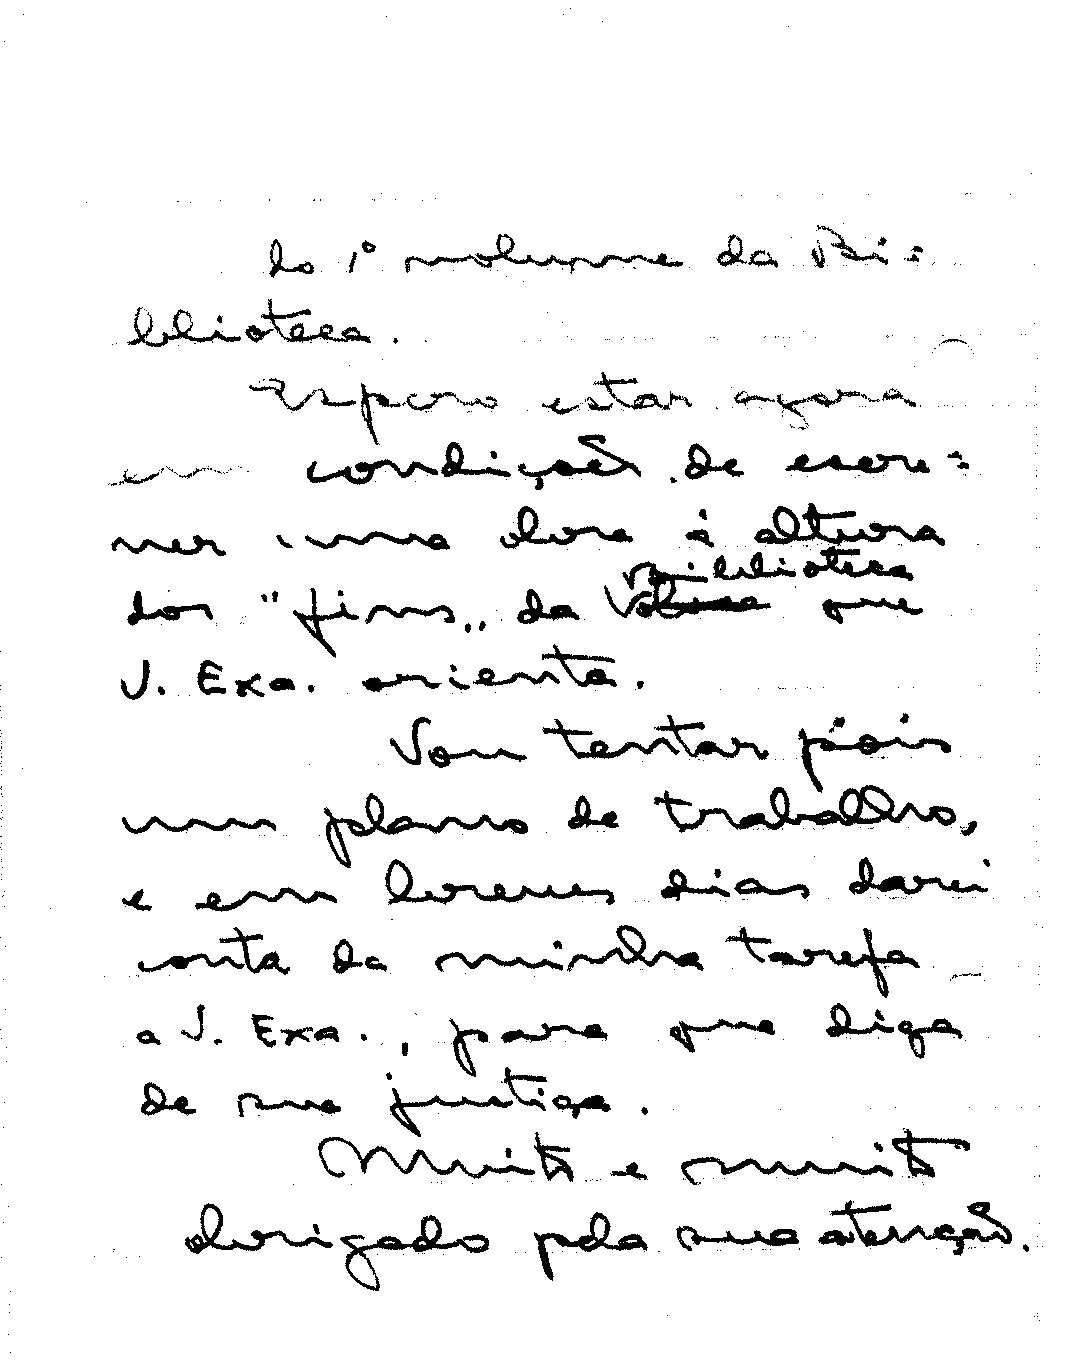 do 1º volume da Bi=
blioteca.
Espero estar agora
em condições de escre=
ver uma obra à altura
dos "fins" da Biblioteca que
V. Exa. orienta.
Vou tentar pois
um plano de trabalho,
e em breves dias darei
conta da minha tarefa
a V. Exa., para que diga
de sua justiça.
Muito e muito
obrigado pela sua atenção.